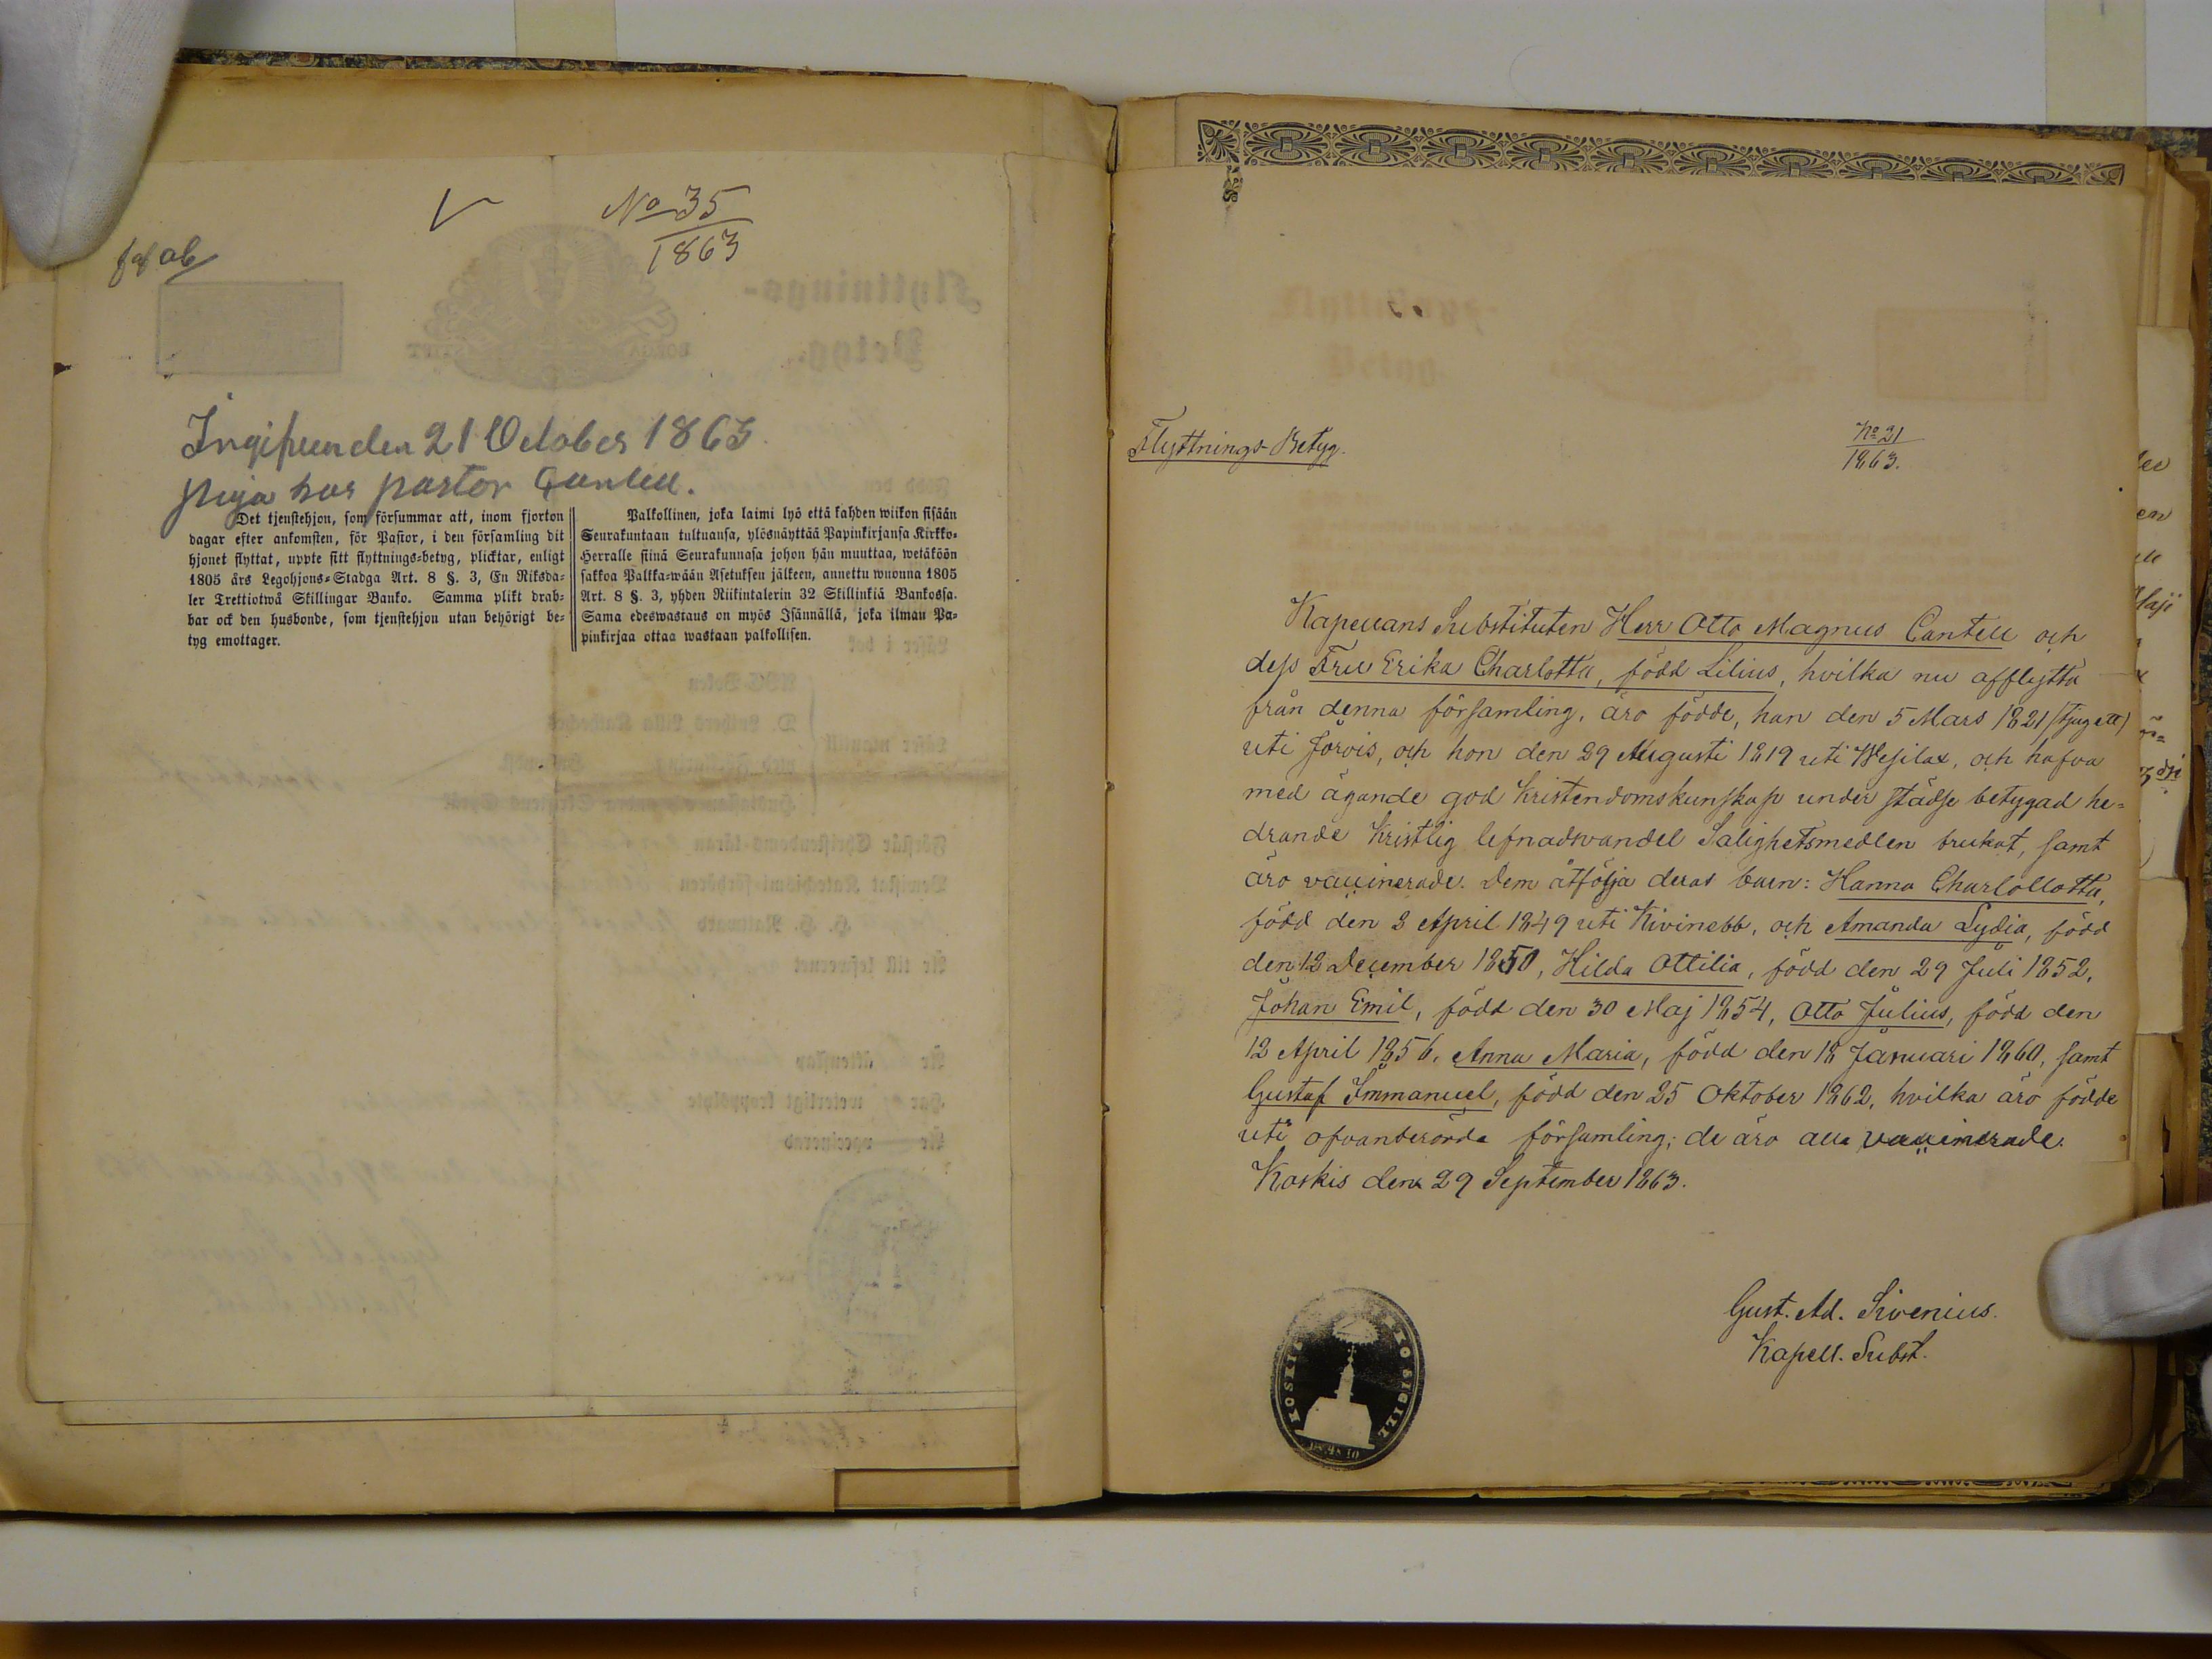 No 35
1863
Ingifven den 21 October 1863
piga hos pastor Cantell.
Det tjenstehjon, som försummar att, inom fjorton
dagar efter ankomsten, för Pastor, i den församling dit
hjonet flyttat, uppte sitt flyttnings-betyg, plicktar, enligt
1805 års Legohjons-Stadga Art. 8 §. 3, En Riksda-
ler Trettiotwå Skillingar Banko. Samma plikt drab-
bar ock den husbonde, som tjenstehjon utan behörigt be-
tyg emottager.
Palkollinen, joka laimi lyö että kahden wiikon sisään
Seurakuntaan tultuansa, ylösnäyttää Papinkirjansa Kirkko-
Herralle siinä Seurakunnasa johon hän muuttaa, wetäköön
sakkoa Palkka-wään Asetuksen jälkeen, annettu wuonna 1805
Art. 8 §. 3, yhden Riikintalerin 32 Skillinkiä Bankossa.
Sama edeswastaus on myös Isännällä, joka ilman Pa-
pinkirjaa ottaa wastaan palkollisen.
Flyttnings-Betyg.
No 21
1863.
Kapellans Substituten Herr Otto Magnus Cantell och
dess Fru Erika Charlotta, född Lilius, hvilka nu afflytta
från denna församling, äro födde, han den 5 Mars 1821 (tjugett)
uti Jorois, och hon den 29 Augusti 1819 uti Wesilax, och hafva
med ägande god Kristendomskunskap under städse betygad he-
drande Kristlig lefnadsvandel Salighetsmedlen brukat, samt
äro vaccinerade. Dem åtfölja deras barn: Hanna Charlollotta,
född den 3 April 1849 uti Kivinebb, och Amanda Lydia, född
den 12 December 1850, Hilda Ottilia, född den 29 Juli 1852,
Johan Emil, född den 30 Maj 1854, Otto Julius, född den
12 April 1856, Anna Maria, född den 18 Januari 1860, samt
Gustaf Immanuel, född den 25 Oktober 1862, hvilka äro födde
uti ofvanberörda församling; de äro alla vaccinerade.
Koskis den 29 September 1863.
Gust. Ad. Sivenius.
Kapell. Subst.